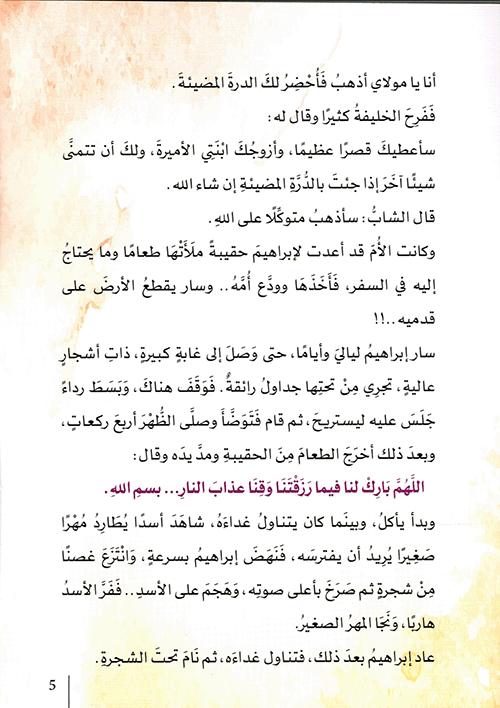 أنا يا مولاي أذهبُ فَأُحْضِرُ لكَ الدرةَ المضيئةَ.
فَفَرِحَ الخليفةُ كثيرًا وقال له:
سأعطيكَ قصرًا عظيمًا، وأزوجُكَ ابْنَتِي الأميرةَ، ولكَ أن تتمنَّى
شيئًا آخَرَ إذا جئتَ بالدُّرَّةِ المضيئةِ إن شاء الله.
قال الشابُّ: سأذهبُ متوكِّلًا على اللهِ.
وكانت الأُمّ قد أعدت لإبراهيمَ حقيبةً ملَأَتْهَا طعامًا وما يحتاجُ
إليه في السفر، فَأَخَذَهَا وودَّع أُمَّهُ.. وسار يقطعُ الأرضَ على
قدميه..!!
سار إبراهيمُ لياليَ وأيامًا، حتى وَصَلَ إلى غابةٍ كبيرةٍ، ذاتِ أشجارٍ
عاليةٍ، تجرِي مِنْ تحتِها جداولُ رائقةٌ. فَوَقَفَ هناكَ، وَبَسَطَ رداءً
جَلَسَ عليه ليستريحَ، ثم قام فَتَوَضَّأَ وصلَّى الظُّهْرَ أربعَ ركعاتٍ،
وبعدَ ذلك أخرَجَ الطعامَ مِنَ الحقيبةِ ومدَّ يدَه وقال:
اللَّهُمَّ بَارِكْ لنا فيما رَزَقْتَنَا وَقِنَا عذابَ النارِ... بسمِ اللهِ.
وبدأ يأكلُ، وبينَما كان يتناولُ غداءَهُ، شاهَدَ أسدًا يُطَارِدُ مُهْرًا
صَغِيرًا يُرِيدُ أن يفترسَه، فَنَهَضَ إبراهيمُ بسرعةٍ، وَانْتَزَعَ غصنًا
مِنْ شجرةٍ ثم صَرَخَ بأعلى صوتِه، وَهَجَمَ على الأسدِ.. فَفَرَّ الأسدُ
هاربًا، وَنَجَا المهرُ الصغيرُ.
عاد إبراهيمُ بعدَ ذلك، فتناول غداءَه، ثم نَامَ تحتَ الشجرةِ.
5